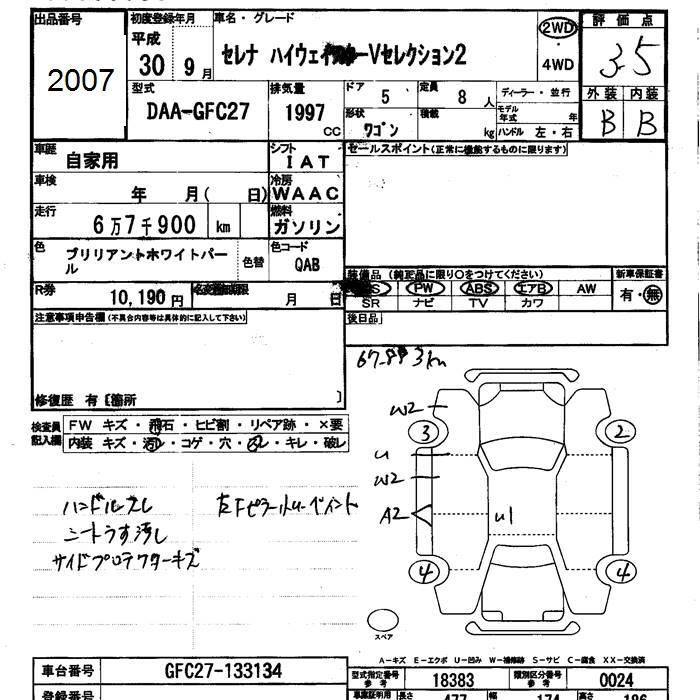 出品番号 初度登録年月 車名・グレード 評価点
2007 平成 30 9月 セレナ ハイウェイ Vセレクション2 2WD ・ 4WD 3.5
型式 排気量 ドア 定員 ディーラー・並行 外装 内装
DAA-GFC27 1997 CC 5 8人 モデル年式 年 B B
形状 ワゴン 積載 kg ハンドル 左・右
車歴 自家用 シフト IAT セールスポイント(正常に機能するものに限ります)
車検 年 月( 日) 冷房 WAAC
走行 6万7千900 km 燃料 ガソリン
色 ブリリアントホワイトパール 色替 色コード QAB
装備品 (純正品に限り○をつけてください) 新車保証書
PW ABS エアB AW 有・無
SR ナビ TV カワ
R券 10,190円 名変期限 月 日
注意事項申告欄(不具合内容等は具体的に記入して下さい) 後日品
修復歴 有〔箇所 〕
67.993km
検査員記入欄 FW キズ・飛石・ヒビ割・リペア跡・×要
内装 キズ・汚レ・コゲ・穴・・キレ・破レ
ハンドルズレ
シートうす汚し
サイドプロテクターキズ
W2
3 2
U
W2
A2
U1
4 4
スペア
A-キズ E-エクボ U-凹み W-補修跡 S-サビ C-腐食 XX-交換済
車台番号 GFC27-133134 型式指定番号 参考 18383 類別区分番号 参考 0024
登録番号 長さ 477 幅 174 高さ 186